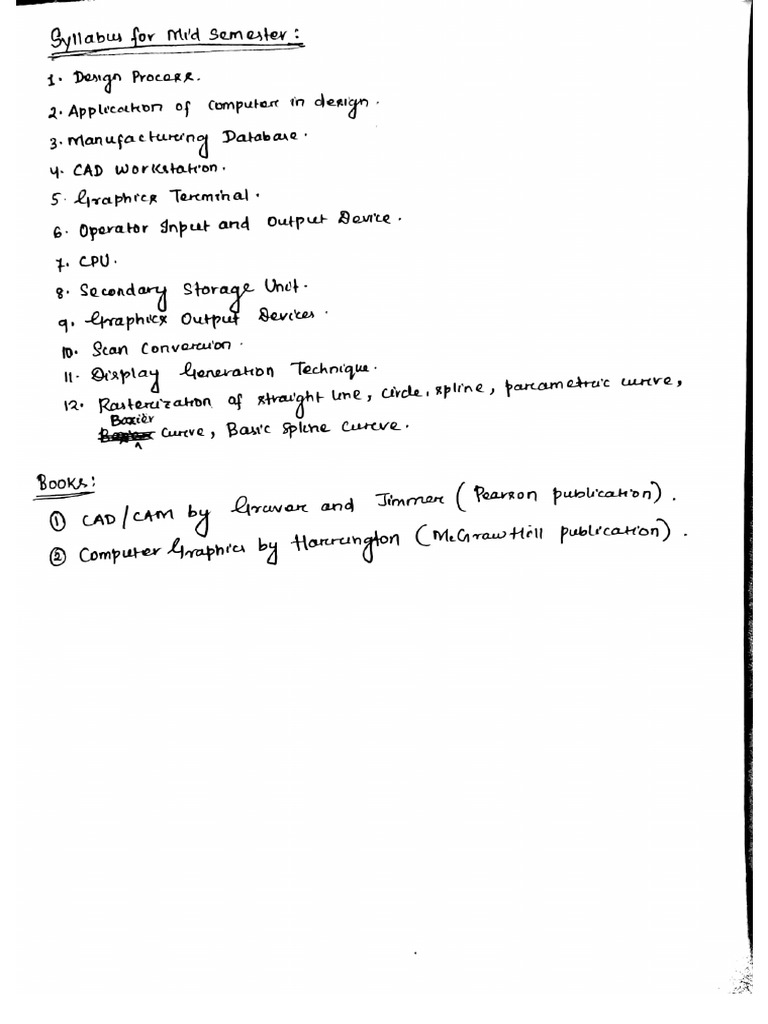 Syllabus for Mid Semester:
1. Design Process.
2. Application of computer in design.
3. Manufacturing Database.
4. CAD Workstation.
5. Graphics Terminal.
6. Operator Input and Output Device.
7. CPU.
8. Secondary Storage Unit.
9. Graphics Output Devices.
10. Scan Conversion.
11. Display Generation Technique.
12. Rasterization of straight line, circle, spline, parametric curve,
Bezier
Curve, Basic Spline Curve.
Books:
① CAD/CAM by Gruvar and Jimmer (Pearson publication).
② Computer Graphics by Harrington (McGraw Hill publication).